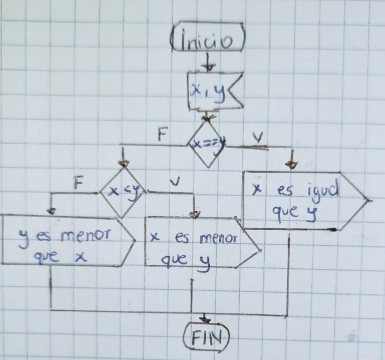 Inicio
x, y
F
x==y
V
F
x<y
V
x es igual
que y
y es menor
que x
x es menor
que y
FIN